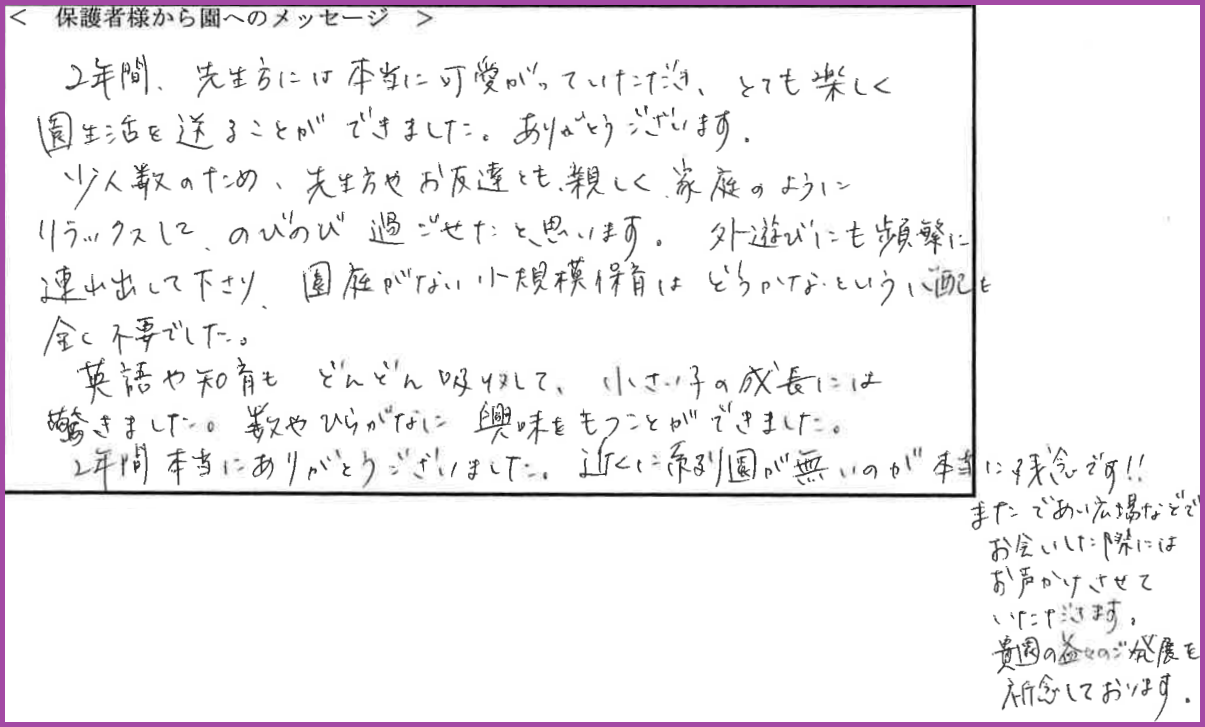 < 保護者様から園へのメッセージ >
2年間、先生方には本当に可愛がっていただき、とても楽しく
園生活を送ることができました。ありがとうございます。
少人数のため、先生方やお友達とも、親しく、家庭のように
リラックスして、のびのび過ごせたと思います。外遊びにも頻繁に
連れ出して下さり、園庭がない小規模保育はどうかな、という心配も
全く不要でした。
英語や知育もどんどん吸収して、小さい子の成長には
驚きました。数やひらがなに興味をもつことができました。
2年間本当にありがとうございました。近くに系列園が無いのが本当に残念です!!
またであい広場などで
お会いした際には
お声かけさせて
いただきます。
貴園の益々のご発展を
祈念しております。